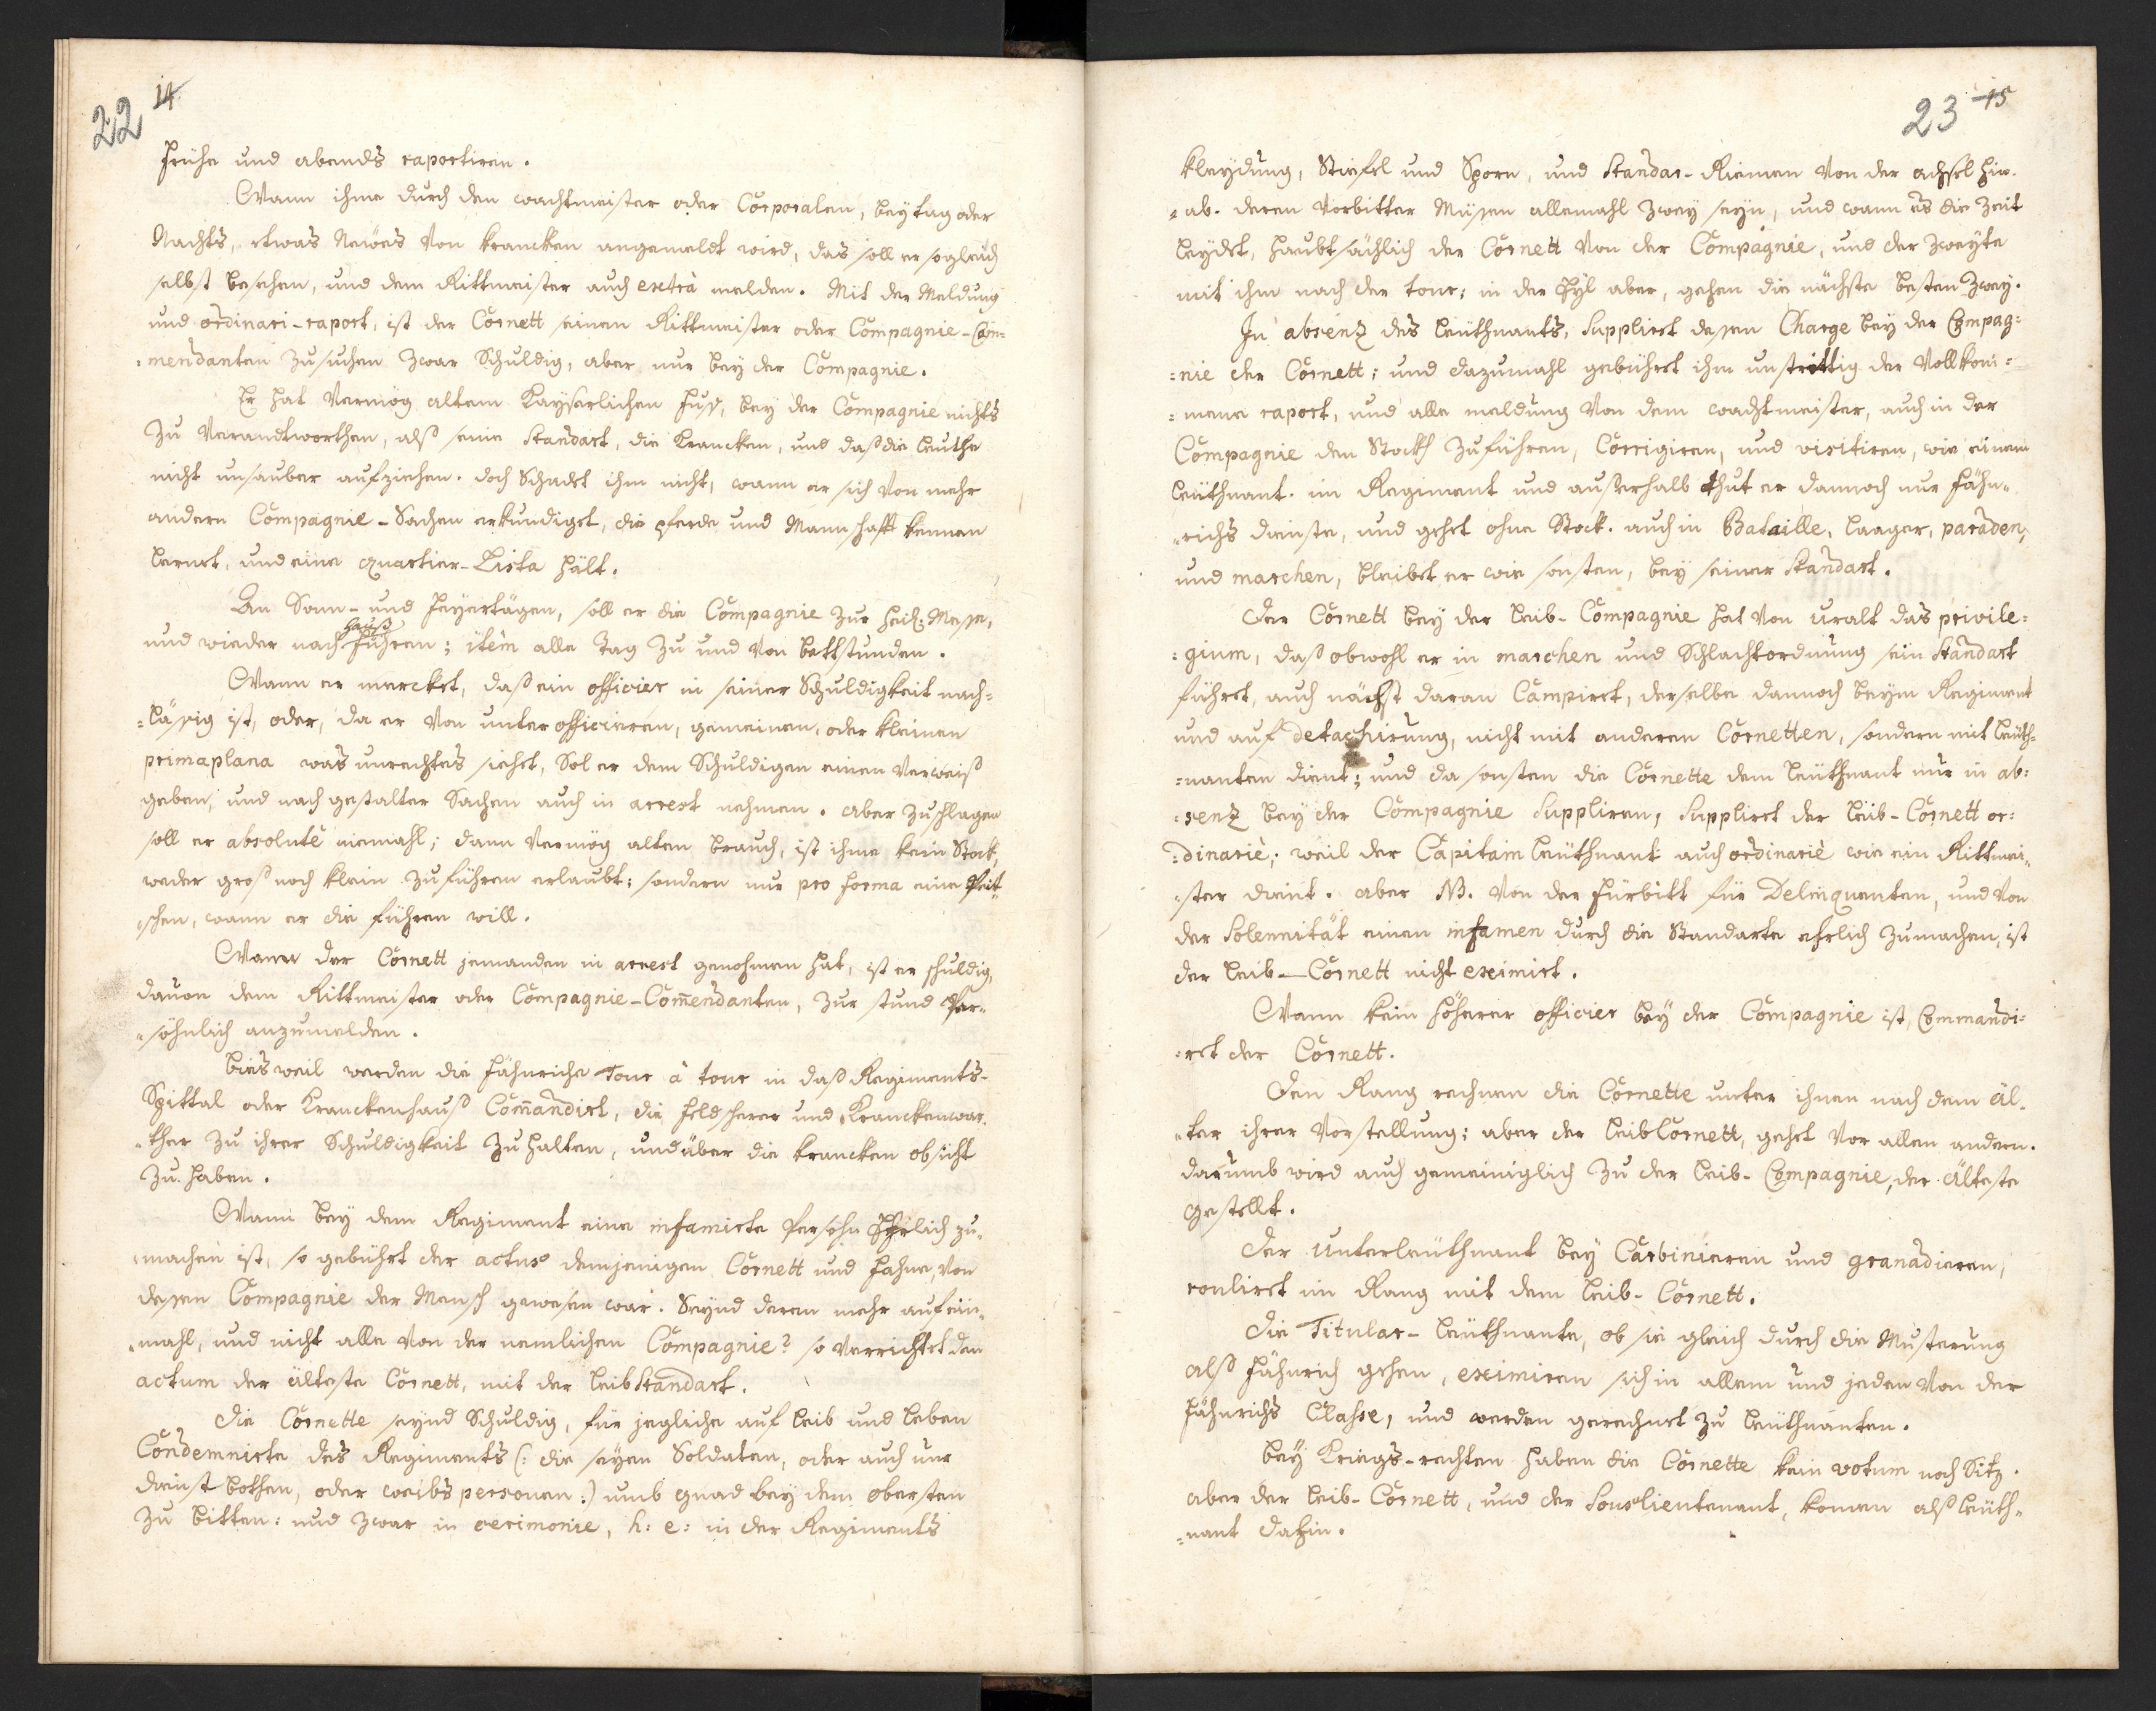 22 14
frühe und abends raportiren.
Wann ihme durch den wachtmeister oder Corporalen, bey tag oder
Nachts, etwas Neües von krancken angemeldt wird, das soll er sogleich
selbst besehen, und dem Rittmeister auch extrà melden. Mit der Meldung
und ordinari-raport, ist der Cornett seinen Rittmeister oder Compagnie-Com=
=mendanten zu suchen zwar Schuldig, aber nur bey der Compagnie.
Er hat Vermög altem Kayserlichen fuß, bey der Compagnie nichts
zu Verandtworthen, alß seine Standart, die Krancken, und daß die leuthe
nicht unsauber aufziehen. doch Schadet ihm nicht, wann er sich Von mehr
andern Compagnie-Sachen erkundiget, die pferde und Mannschafft kennen
lernet, und eine quartier-Lista hält.
An Sonn- und feyertägen, soll er die Compagnie zur heil: Messe,
und wieder nach hauß führen; itèm alle Tag zu und Von bettstunden.
Wann er mercket, daß ein officier in seiner Schuldigkeit nach=
=läßig ist, oder, da er Von unter officieren, gemeinen, oder kleinen
primaplana was unrechtes siehet, Sol er dem Schuldigen einen Verweiß
geben, und nach gestalter Sachen auch in arrest nehmen. aber zuschlagen
soll er absolutè niemahl; dann Vermög alten brauch, ist ihme kein Stock,
weder groß noch klein zuführen erlaubt: sondern nur pro forma eine Peit=
=schen, wann er die führen will.
Wann der Cornett jemanden in arrest genohmen hat, ist er schuldig,
dauon dem Rittmeister oder Compagnie-Com̄endanten, zur stund Per=
=söhnlich anzumelden.
bisweil werden die fähnriche Tour à tour in daß Regiments-
Spittal oder Kranckenhauß Com̄andirt, die feldscherer und Kranckenwar=
=ther zu ihrer Schuldigkeit zu halten, und über die krancken obsicht
zu haben.
Wann bey dem Regiment eine infamirte Persohn Ehrlich zu=
=machen ist, so gebührt der actus demjenigen Cornett und fahne, Von
dessen Compagnie der Mensch gewesen war. Seynd deren mehr auf ein=
=mahl, und nicht alle Von der nemlichen Compagnie? so Verrichtet den
actum der älteste Cornett, mit der leib Standart.
die Cornette seynd Schuldig, für jegliche auf leib und leben
Condemnirte des Regiments (: die seyen Soldaten, oder auch nur
dienst bothen, oder weibs personen:) umb gnad bey dem obersten
zu bitten: und zwar in cerimonie, h: e: in der Regiments
23 15
kleydung, Stiefel und Sporn, und Standar-Riemen Von der achsel hin=
=ab. deren Vorbitter Müßen allemahl zwey seyn, und wann es die zeit
leydet, haubtsächlich der Cornett Von der Compagnie, und der zweyte
mit ihm nach der tour; in der Eyl aber, gehen die nächste besten zwey.
In absenz des leüthnants, Supplirt dessen Charge bey der Compag=
=nie der Cornett; und dazumahl gebühret ihm unstrittig der Vollkom=
=mene raport, und alle meldung Von dem wachtmeister, auch in der
Compagnie den Stockh zuführen, Corrigiren, und visitiren, wie einem
leüthnant. im Regiment und außerhalb thut er dannoch nur fähn=
=richs dienste, und gehet ohne Stock. auch in Bataille, laager, paraden,
und marchen, bleibet er wie sonsten, bey seiner Standart.
der Cornett bey der leib-Compagnie hat Von uralt das privile=
=gium, daß obwohl er in marchen und Schlachtordnung sein Standart
führet, auch nächst daran Campiret, derselbe dannoch beym Regiment
und auf detachirung, nicht mit anderen Cornetten, sondern mit leüth=
=nanten dient; und da sonsten die Cornette dem leüthnant nur in ab=
=senz bey der Compagnie Suppliren, Supplirt der leib-Cornett or=
=dinariè; weil der Capitain leüthnant auch ordinariè wie ein Rittmei=
=ster dient. aber NB. Von der fürbitt für Delinquenten, und Von
der Solennität einen infamen durch die Standarte ehrlich zumachen, ist
der leib-Cornett nicht eximirt.
Wann kein höherer officier bey der Compagnie ist, Commandi=
=ret der Cornett.
Den Rang rechnen die Cornette unter ihnen nach dem äl=
=ter ihrer Vorstellung; aber der leib Cornett, gehet Vor allen andern.
darumb wird auch gemeiniglich zu der leib-Compagnie, der älteste
gestellt.
der Unterleüthnant bey Carbinieren und granadieren,
rouliret im Rang mit dem leib-Cornett.
die Titular-leüthnante, ob sie gleich durch die Musterung
alß fähnrich gehen, eximiren sich in allem und jeden Von der
fähnrichs Classe, und werden gerechnet zu leüthnanten.
bey Kriegs-rechten haben die Cornette kein votum noch Sitz.
aber der leib-Cornett, und der Souslieutenant, komen alß leüth=
=nant dahin.